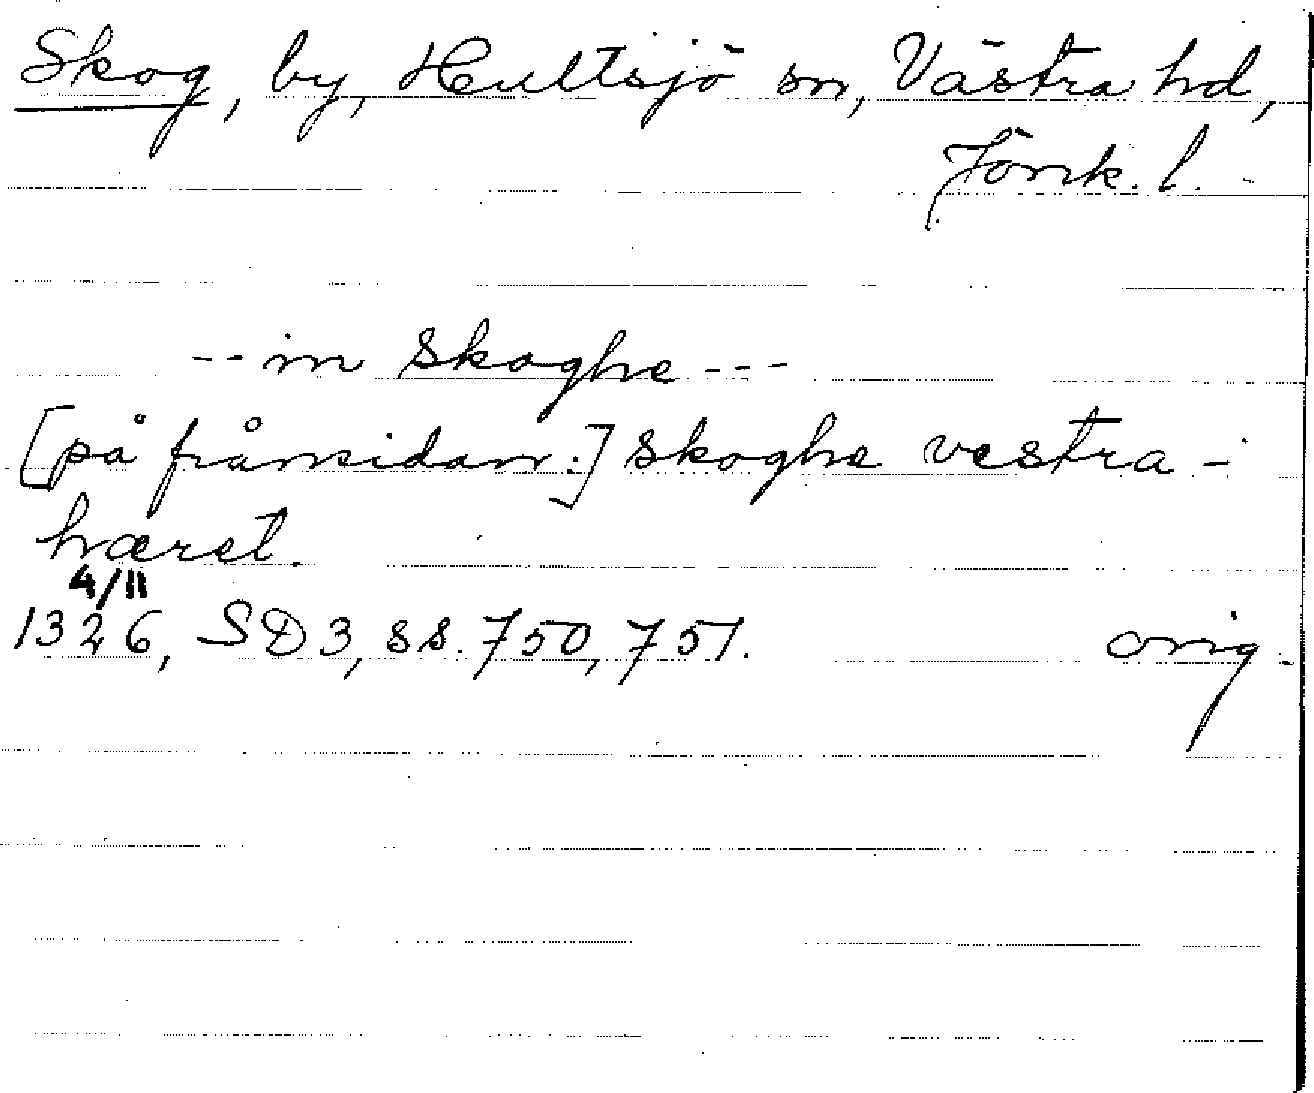 Skog, by, Hultsjö sn, Västra hd,
Jönk. l.
-- in skoghe ---
[på frånsidan:] skoghe vestra -
hæret.
4/11
1326, SD 3, ss. 750, 751. orig.